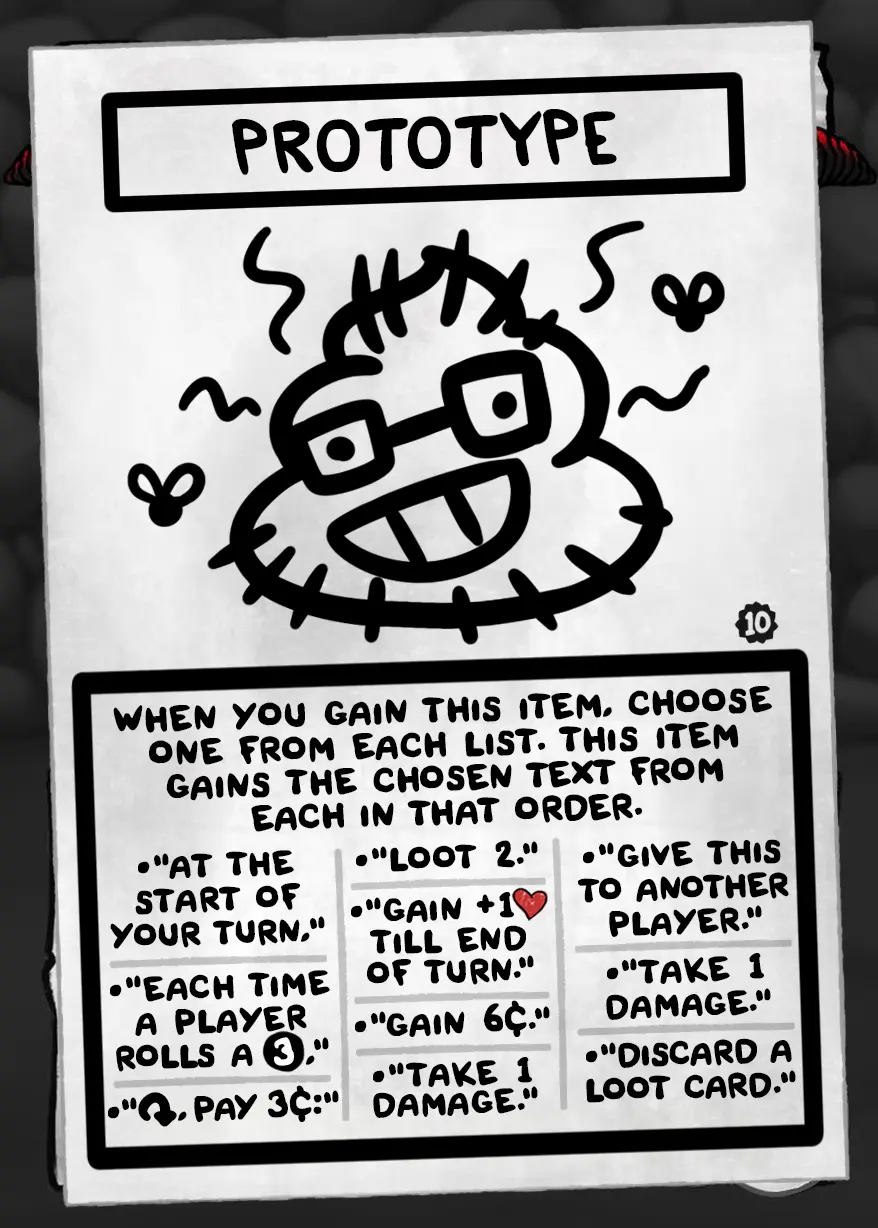 PROTOTYPE
10
WHEN YOU GAIN THIS ITEM, CHOOSE
ONE FROM EACH LIST. THIS ITEM
GAINS THE CHOSEN TEXT FROM
EACH IN THAT ORDER.
•"AT THE
START OF
YOUR TURN,"
•"EACH TIME
A PLAYER
ROLLS A 3,"
•"↷, PAY 3¢:"
•"LOOT 2."
•"GAIN +1♥
TILL END
OF TURN."
•"GAIN 6¢."
•"TAKE 1
DAMAGE."
•"GIVE THIS
TO ANOTHER
PLAYER."
•"TAKE 1
DAMAGE."
•"DISCARD A
LOOT CARD."